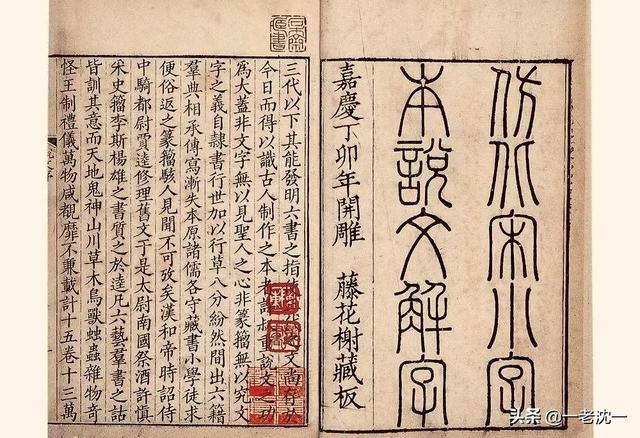 仿北宋小字
本說文解字
嘉慶丁卯年開雕 藤花榭藏板
三代以下其能發明六書之指 文尚存於
今日而得以識古人制作之本者許叔重說文之功
為大蓋非文字無以見聖人之心非篆籀無以究文
字之義自隸書行世加以行草八分紛然間出六籍
羣典相承傳寫漸失本原諸儒各守藏書小學徒求
便俗返之篆籀駭人見聞不可攷矣漢和帝時詔侍
中騎都尉賈逵修理舊文于是太尉南國祭酒許慎
采史籀李斯楊雄之書質之於逵凡六藝羣書之詁
皆訓其意而天地鬼神山川草木鳥獸蚰蟲雜物奇
怪王制禮儀萬物咸覩靡不兼載計十五卷十三萬
头条 @一老沈一